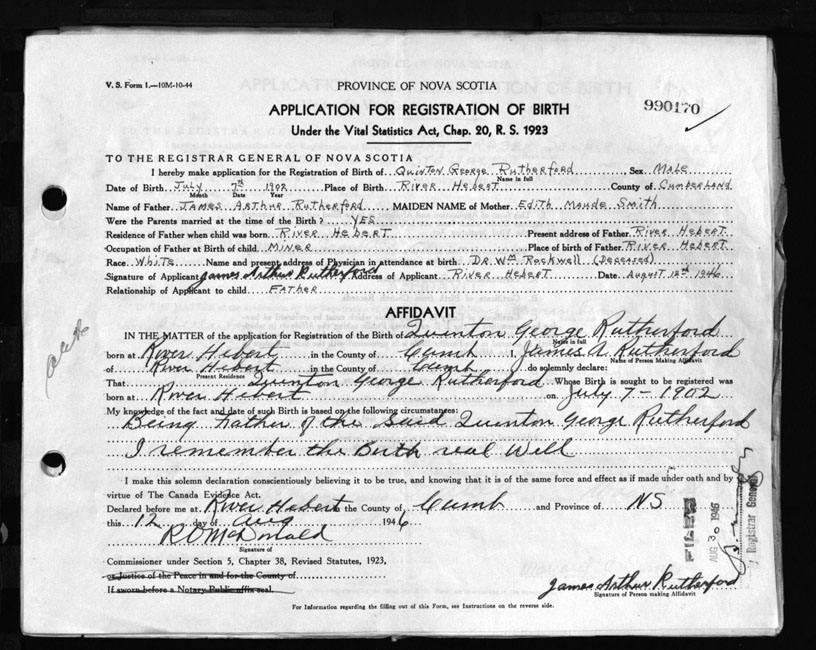 V. S. Form 1.—10M-10-44
PROVINCE OF NOVA SCOTIA
APPLICATION FOR REGISTRATION OF BIRTH
990170
Under the Vital Statistics Act, Chap. 20, R. S. 1923
TO THE REGISTRAR GENERAL OF NOVA SCOTIA
I hereby make application for the Registration of Birth of Quinton George Rutherford Sex Male
Name in full
Date of Birth July 7th 1902 Place of Birth River Hebert County of Cumberland
Month Date Year
Name of Father James Arthur Rutherford MAIDEN NAME of Mother Edith Maude Smith
Were the Parents married at the time of the Birth? YES
Residence of Father when child was born River Hebert Present address of Father River Hebert
Occupation of Father at Birth of child Miner Place of birth of Father River Hebert
Race White Name and present address of Physician in attendance at birth Dr. Wm Rockwell (Deceased)
Signature of Applicant James Arthur Rutherford Address of Applicant River Hebert Date August 12th 1946
Relationship of Applicant to child Father
AFFIDAVIT
IN THE MATTER of the application for Registration of the Birth of Quinton George Rutherford
Name in full
born at River Hebert in the County of Cumb I, James A. Rutherford
Name of Person Making Affidavit
of River Hebert in the County of Cumb do solemnly declare:
Present Residence
That Quinton George Rutherford Whose Birth is sought to be registered was
born at River Hebert on July 7 - 1902
My knowledge of the fact and date of such Birth is based on the following circumstances:
Being Father of the Said Quinton George Rutherford
I remember the Birth real Well
I make this solemn declaration conscientiously believing it to be true, and knowing that it is of the same force and effect as if made under oath and by
virtue of The Canada Evidence Act.
Declared before me at River Hebert in the County of Cumb and Province of NS
this 12 day of Aug 1946
R D McDonald
Signature of
Commissioner under Section 5, Chapter 38, Revised Statutes, 1923,
or Justice of the Peace in and for the County of
If sworn before a Notary Public affix seal.
James Arthur Rutherford
Signature of Person making Affidavit
For Information regarding the filling out of this Form, see Instructions on the reverse side.
FILED
NOV 30 1946
Registrar General